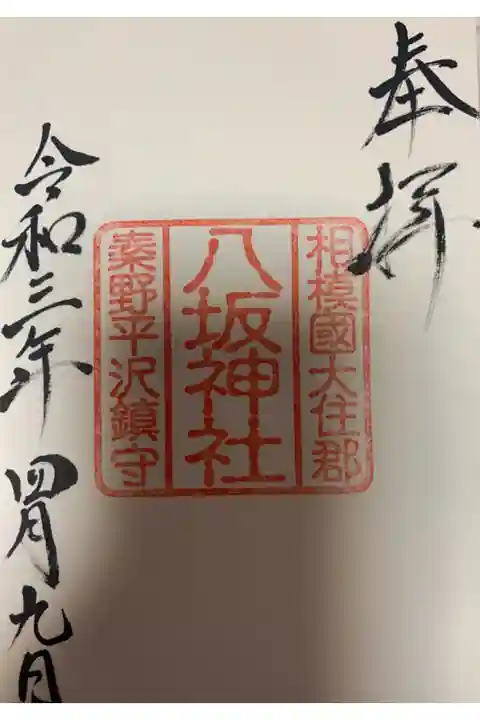 奉拝
相模國大住郡
八坂神社
秦野平沢鎮守
令和三年 四月九日